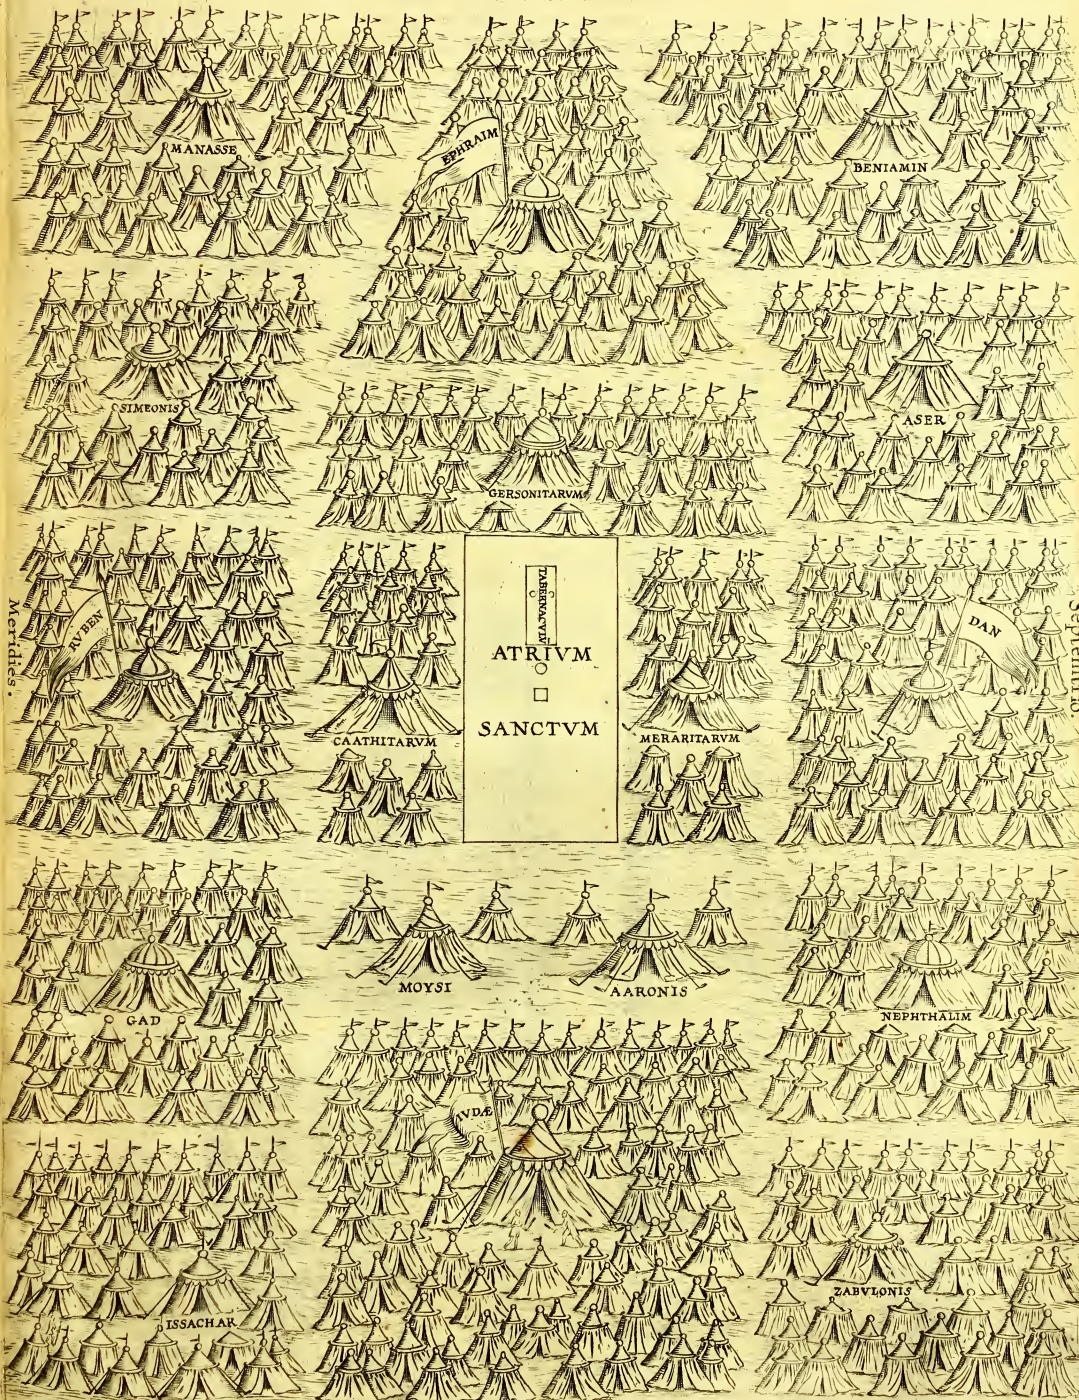 MANASSE
EPHRAIM
BENIAMIN
SIMEONIS
GERSONITARVM
ASER
RVBEN
Meridies.
CAATHITARVM
TABERNACVLV
ATRIVM
SANCTVM
MERARITARVM
DAN
Septentrio.
GAD
MOYSI
AARONIS
NEPHTHALIM
IVDÆ
ISSACHAR
ZABVLONIS